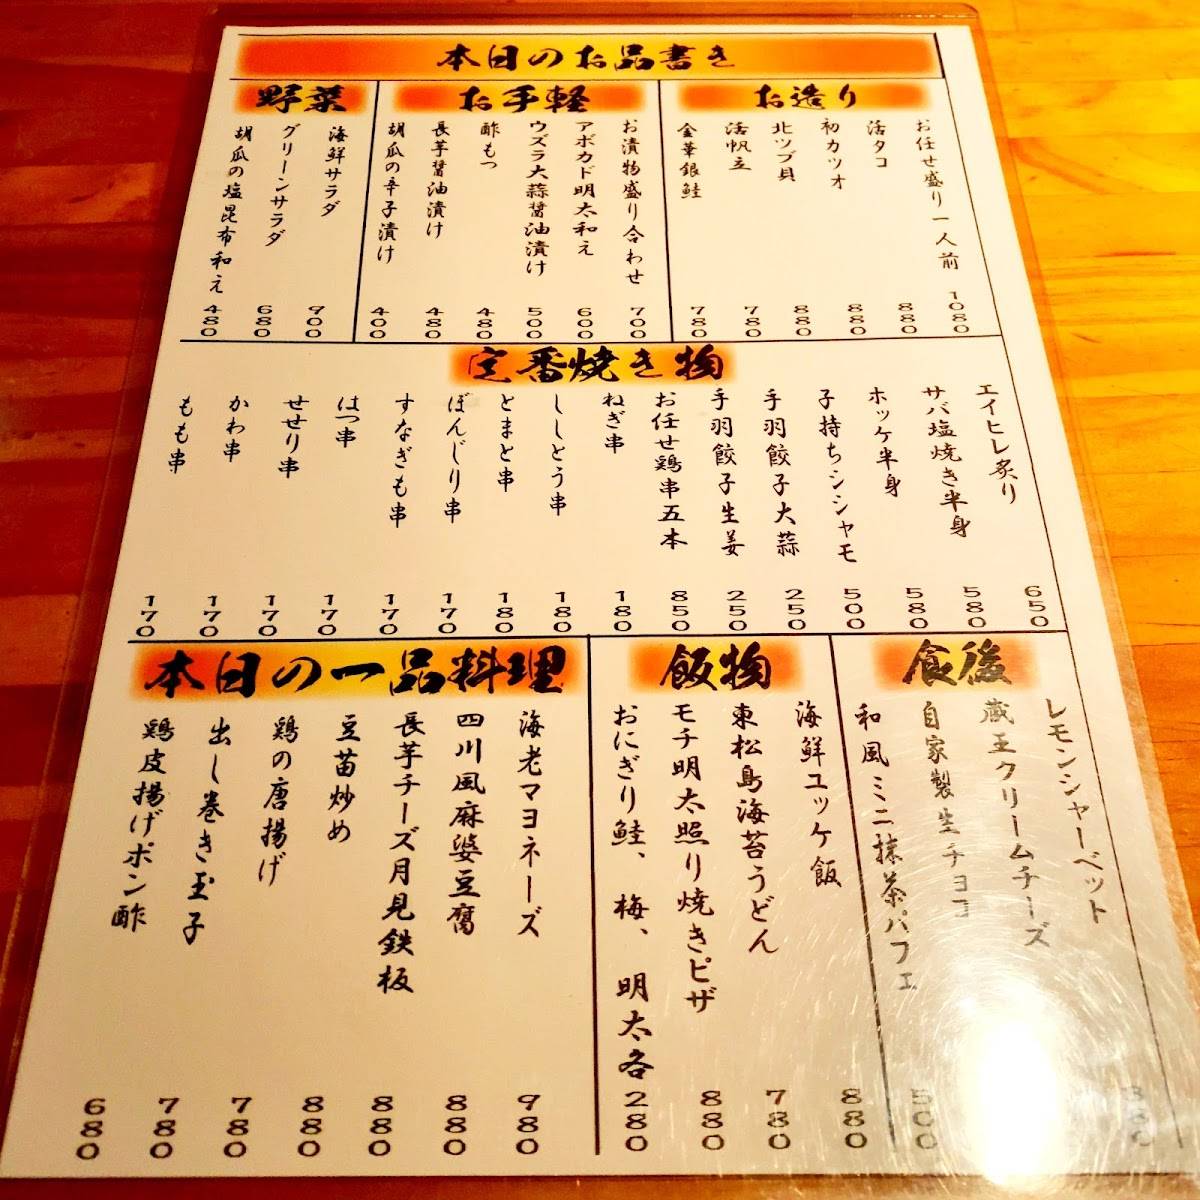 本日のお品書き
お造り
お任せ盛り一人前 1080
活タコ 880
初カツオ 880
北ツブ貝 880
活帆立 780
金華銀鮭 780
お手軽
お漬物盛り合わせ 700
アボカド明太和え 600
ウズラ大蒜醤油漬け 500
酢もつ 480
長芋醤油漬け 480
胡瓜の辛子漬け 400
野菜
海鮮サラダ 900
グリーンサラダ 680
胡瓜の塩昆布和え 480
定番焼き物
エイヒレ炙り 650
サバ塩焼き半身 580
ホッケ半身 580
子持ちシシャモ 500
手羽餃子大蒜 250
手羽餃子生姜 250
お任せ鶏串五本 850
ねぎ串 180
ししとう串 180
とまと串 180
ぼんじり串 170
すなぎも串 170
はつ串 170
せせり串 170
かわ串 170
もも串 170
食後
レモンシャーベット 380
蔵王クリームチーズ
自家製生チョコ
和風ミニ抹茶パフェ 500
飯物
海鮮ユッケ飯 880
東松島海苔うどん 780
モチ明太照り焼きピザ 880
おにぎり鮭、梅、明太各 280
本日の一品料理
海老マヨネーズ 980
四川風麻婆豆腐 880
長芋チーズ月見鉄板 880
豆苗炒め 880
鶏の唐揚げ 780
出し巻き玉子 780
鶏皮揚げポン酢 680